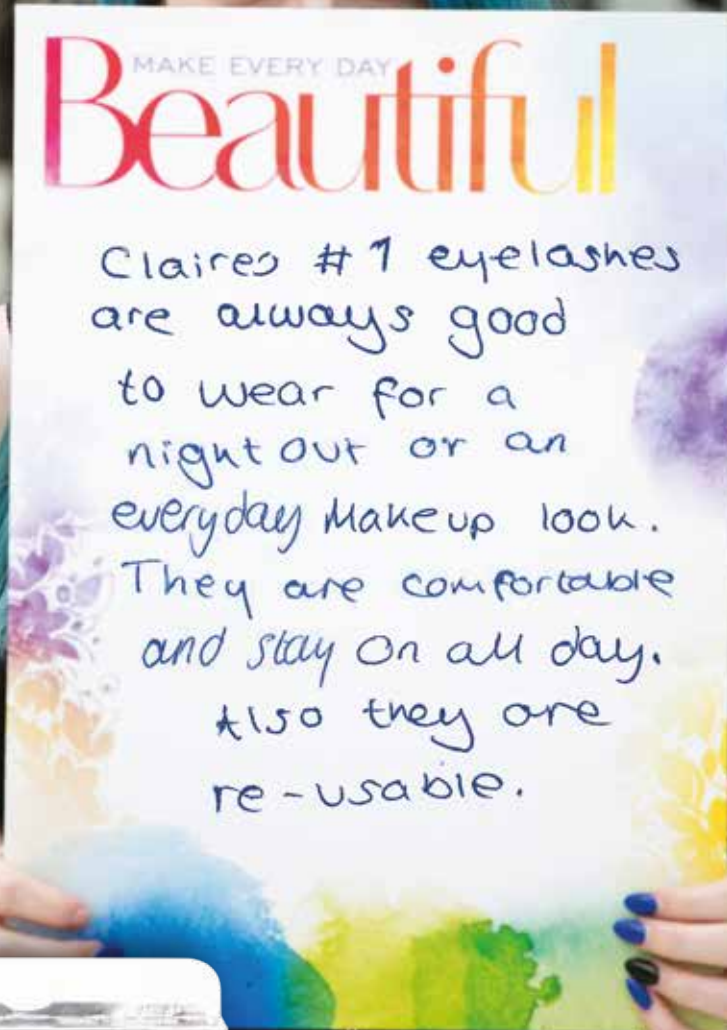 MAKE EVERY DAY
Beautiful
Claires #1 eyelashes
are always good
to wear for a
night out or an
everyday Makeup look.
They are comfortable
and stay on all day.
Also they are
re-usable.